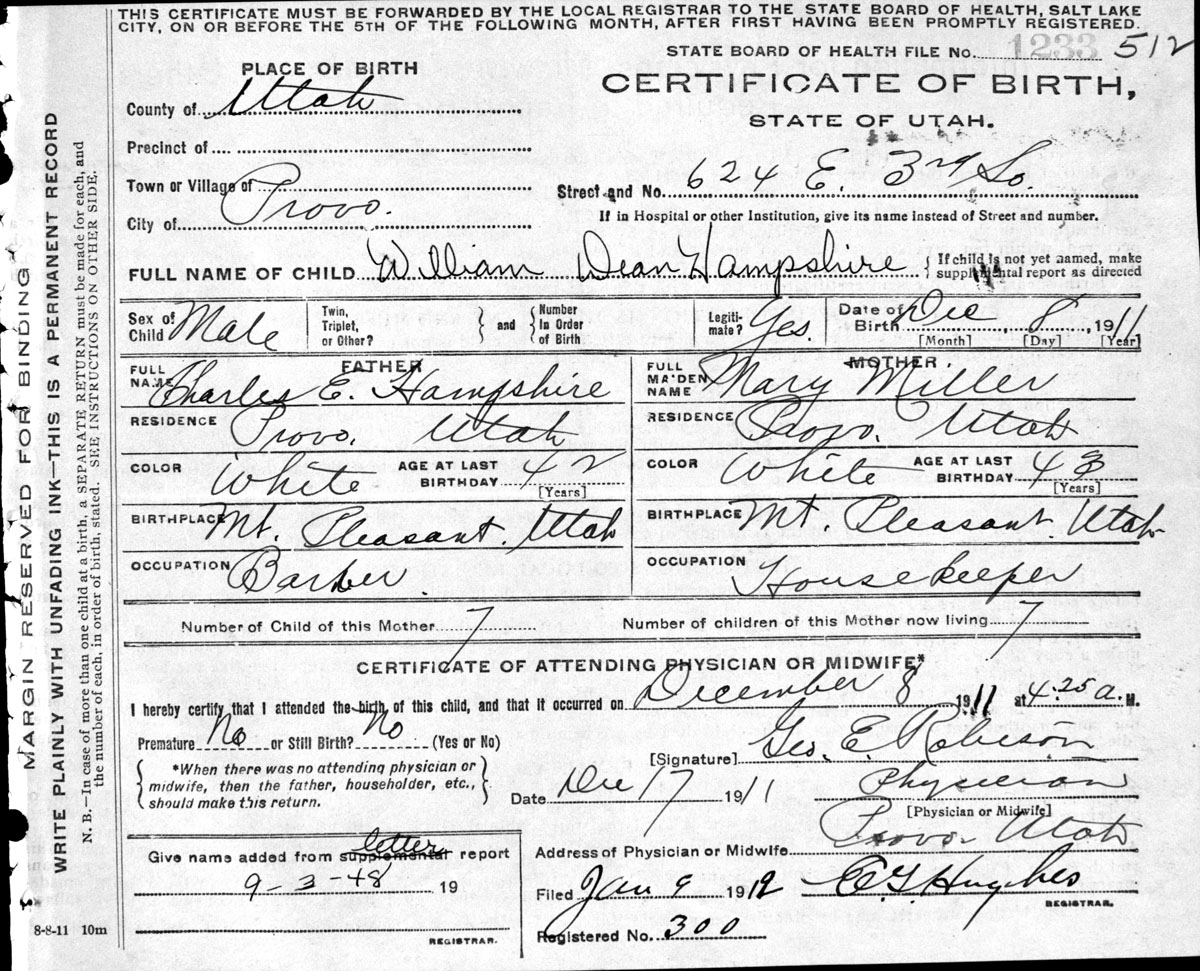 THIS CERTIFICATE MUST BE FORWARDED BY THE LOCAL REGISTRAR TO THE STATE BOARD OF HEALTH, SALT LAKE
CITY, ON OR BEFORE THE 5TH OF THE FOLLOWING MONTH, AFTER FIRST HAVING BEEN PROMPTLY REGISTERED.
STATE BOARD OF HEALTH FILE No. 1233 512
PLACE OF BIRTH
CERTIFICATE OF BIRTH,
County of Utah
STATE OF UTAH.
Precinct of
Town or Village of
Street and No. 624 E. 3rd So.
City of Provo.
If in Hospital or other Institution, give its name instead of Street and number.
FULL NAME OF CHILD William Dean Hampshire { If child is not yet named, make
supplemental report as directed
Sex of Child Male Twin, Triplet, or Other? } and { Number In Order of Birth Legiti-mate? Yes. Date of Birth Dec 8, 1911
[Month] [Day] [Year]
FATHER MOTHER
FULL NAME Charles E. Hampshire FULL MAIDEN NAME Mary Miller
RESIDENCE Provo, Utah RESIDENCE Provo, Utah
COLOR White AGE AT LAST BIRTHDAY 42 COLOR White AGE AT LAST BIRTHDAY 43
[Years] [Years]
BIRTHPLACE Mt. Pleasant, Utah BIRTHPLACE Mt. Pleasant, Utah
OCCUPATION Barber OCCUPATION Housekeeper
Number of Child of this Mother 7 Number of children of this Mother now living 7
CERTIFICATE OF ATTENDING PHYSICIAN OR MIDWIFE*
I hereby certify that I attended the birth of this child, and that it occurred on December 8 1911 at 4:25 a. M.
Premature No or Still Birth? No (Yes or No)
[Signature] Geo. E. Robison
{ *When there was no attending physician or
midwife, then the father, householder, etc.,
should make this return. }
Date Dec 17 1911 Physician
[Physician or Midwife]
Give name added from supplemental letter report
Address of Physician or Midwife Provo Utah
9-3-48 19
Filed Jan 9 1912 Hughes
REGISTRAR.
Registered No. 300
REGISTRAR.
8-8-11 10m
MARGIN RESERVED FOR BINDING
WRITE PLAINLY WITH UNFADING INK—THIS IS A PERMANENT RECORD
N. B.—In case of more than one child at a birth, a SEPARATE RETURN must be made for each, and
the number of each, in order of birth, stated. SEE INSTRUCTIONS ON OTHER SIDE.